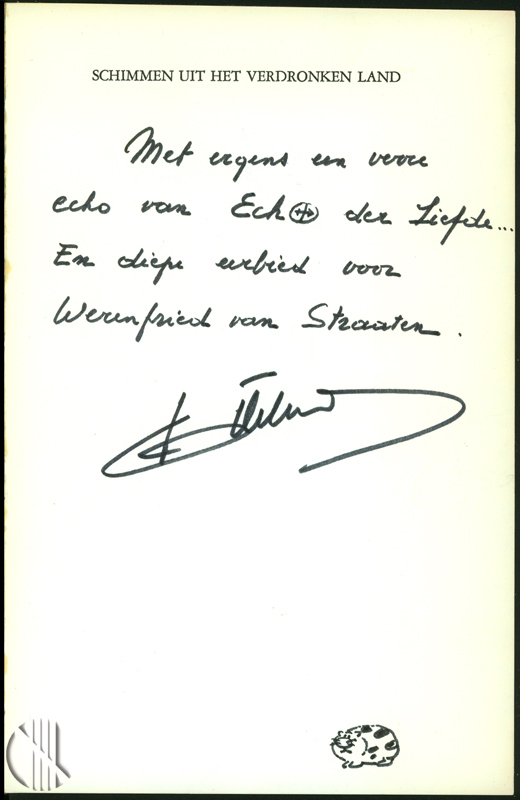 SCHIMMEN UIT HET VERDRONKEN LAND
Met ergens een verre
echo van Echo der Liefde...
En diepe eerbied voor
Werenfried van Straaten.